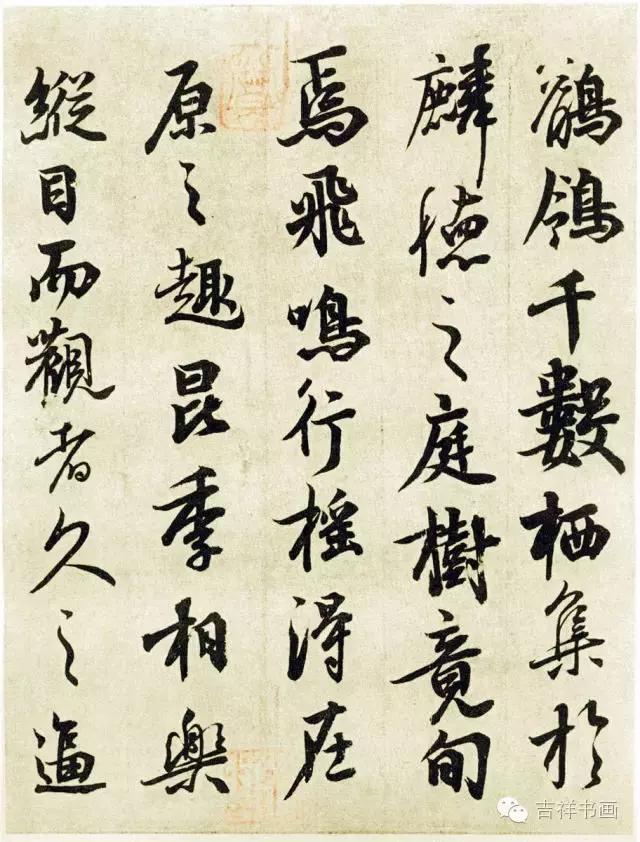 鶺鴒千數栖集於
麟德之庭樹竟旬
焉飛鳴行搖得在
原之趣昆季相樂
縱目而觀者久之逼
吉祥书画